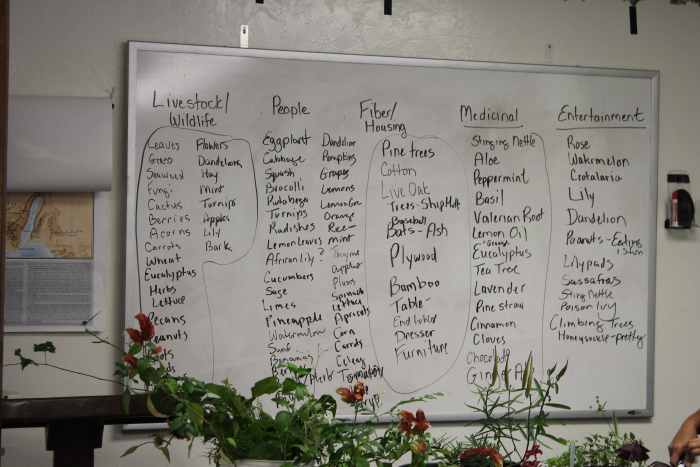 Livestock/
Wildlife
Leaves
Grass
Seaweed
Fungi
Cactus
Berries
Acorns
Carrots
Wheat
Eucalyptus
Herbs
Lettuce
Pecans
Peanuts
Flowers
Dandelions
Hay
Mint
Turnips
Apples
Lily
Bark
People
Eggplant
Cabbage
Squash
Brocolli
Rutabaga
Turnips
Radishes
Lemon leaves
African lily ?
Cucumbers
Sage
Limes
Pineapple
Watermelon
Bananas
Dandelion
Pumpkins
Grapes
Lemons
Orange
Mint
Thyme
Apples
Plums
Spinach
Lettuce
Apricots
Corn
Carrots
Celery
Tomatoes
Fiber/
Housing
Pine trees
Cotton
Live Oak
Trees-Ship Mast
Baseball
Bats - Ash
Plywood
Bamboo
Table
End table
Dresser
Furniture
Medicinal
Stinging Nettle
Aloe
Peppermint
Basil
Valerian Root
Lemon Oil
"orange
Eucalyptus
Tea Tree
Lavender
Pine straw
Cinnamon
Cloves
Chocolate
Entertainment
Rose
Watermelon
Crotalaria
Lily
Dandelion
Peanuts - Eating
Lilypads
Sassafras
Sting Nettle
Poison Ivy
Climbing Trees
Honeysuckle - pretty